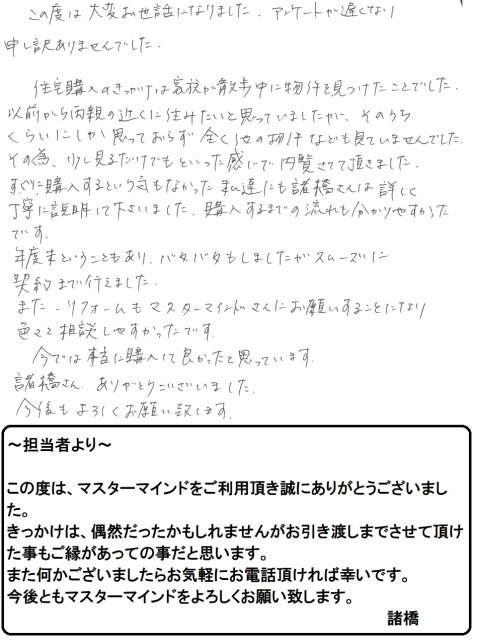 この度は大変お世話になりました。アンケートが遅くなり
申し訳ありませんでした。
住宅購入のきっかけは家族が散歩中に物件を見つけたことでした。
以前から両親の近くに住みたいと思っていましたが、そのうち
くらいにしか思っておらず全く他の物件なども見ていませんでした。
その為、少し見るだけでもといった感じで内覧させて頂きました。
すぐに購入するという気もなかった私達にも諸橋さんは詳しく
丁寧に説明して下さいました。購入するまでの流れも分かりやすかった
です。
年度末ということもあり、バタバタもしましたがスムーズに
契約まで行えました。
また、リフォームもマスターマインドさんにお願いすることになり
色々と相談しやすかったです。
今では本当に購入して良かったと思っています。
諸橋さん、ありがとうございました。
今後もよろしくお願い致します。
～担当者より～
この度は、マスターマインドをご利用頂き誠にありがとうございまし
た。
きっかけは、偶然だったかもしれませんがお引き渡しまでさせて頂け
た事もご縁があっての事だと思います。
また何かございましたらお気軽にお電話頂ければ幸いです。
今後ともマスターマインドをよろしくお願い致します。
諸橋